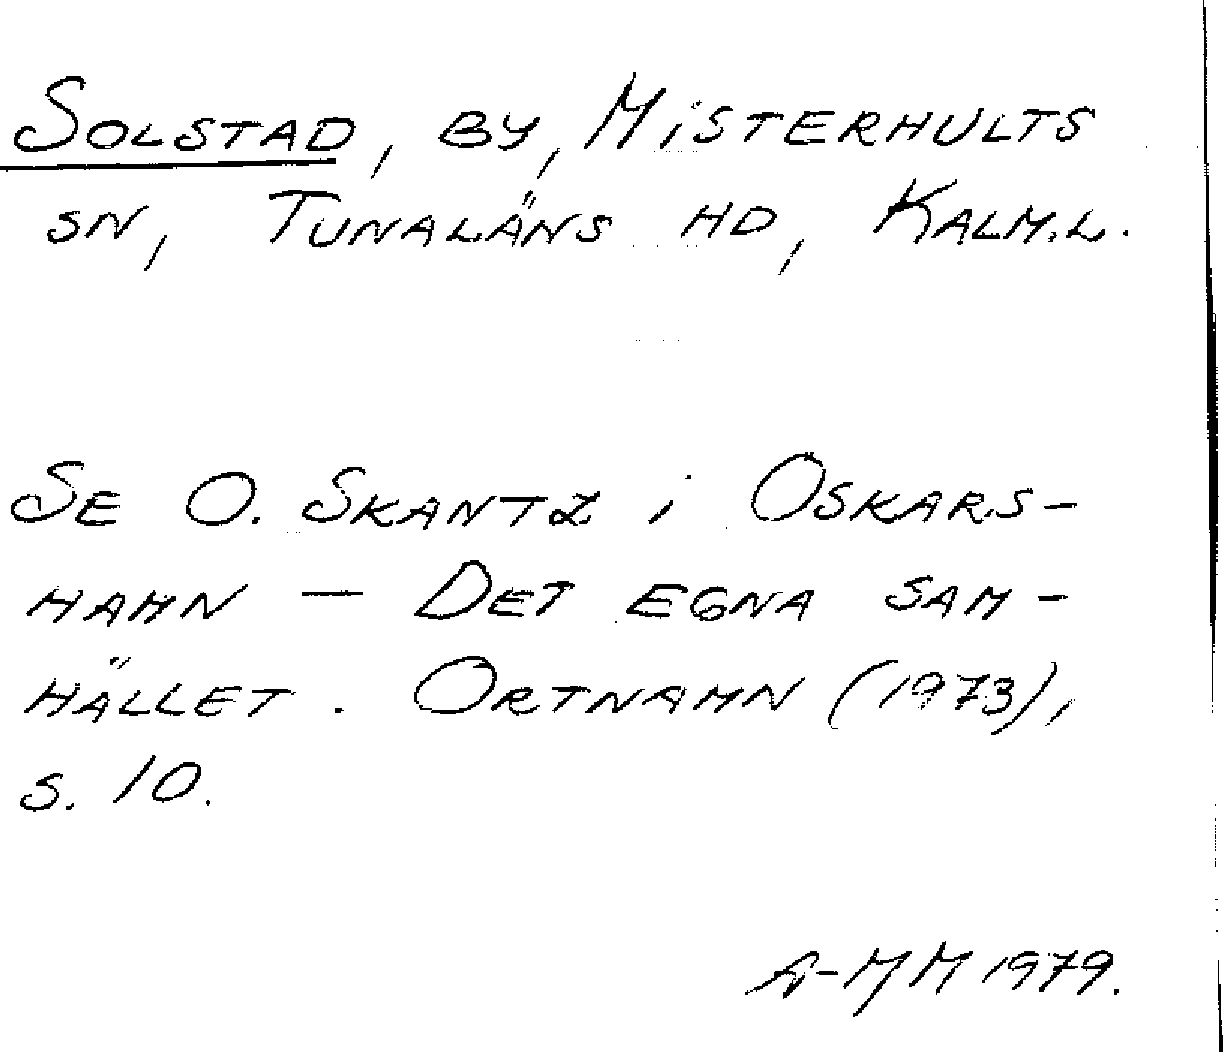 Solstad, by, Misterhults
sn, Tunaläns hd, Kalm.l.
Se O. Skantz i Oskars-
hamn – Det egna sam-
hället. Ortnamn (1973),
s. 10.
A-MM 1979.